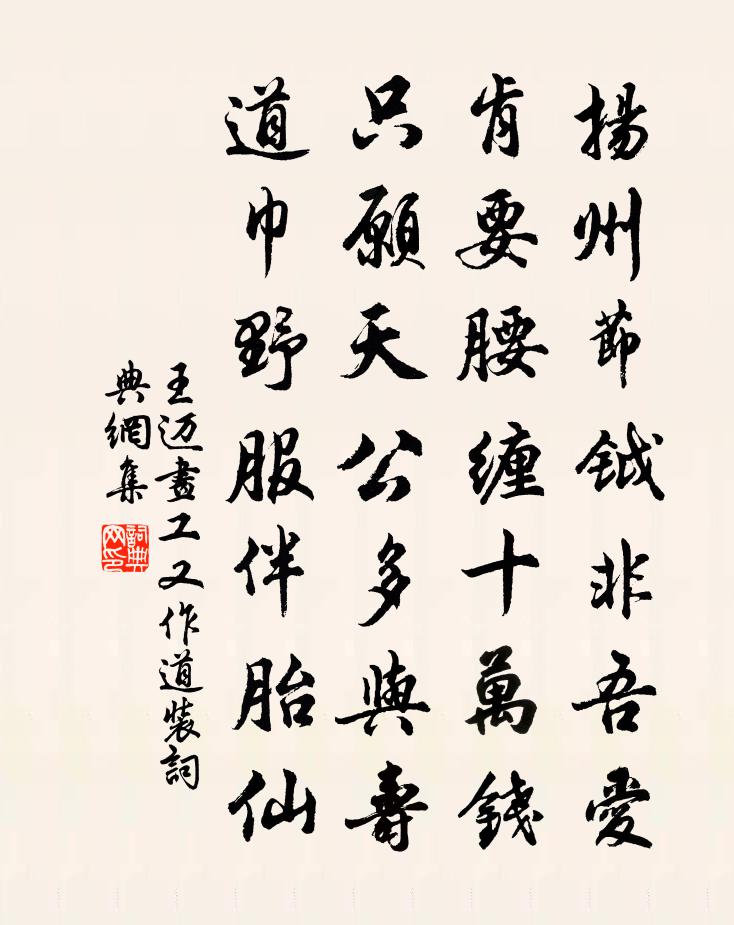 揚州節鉞非吾愛
肯要腰纏十萬錢
只願天公多與壽
道巾野服伴胎仙
王迈畫工又作道裝詞
典網集
詞典
网印